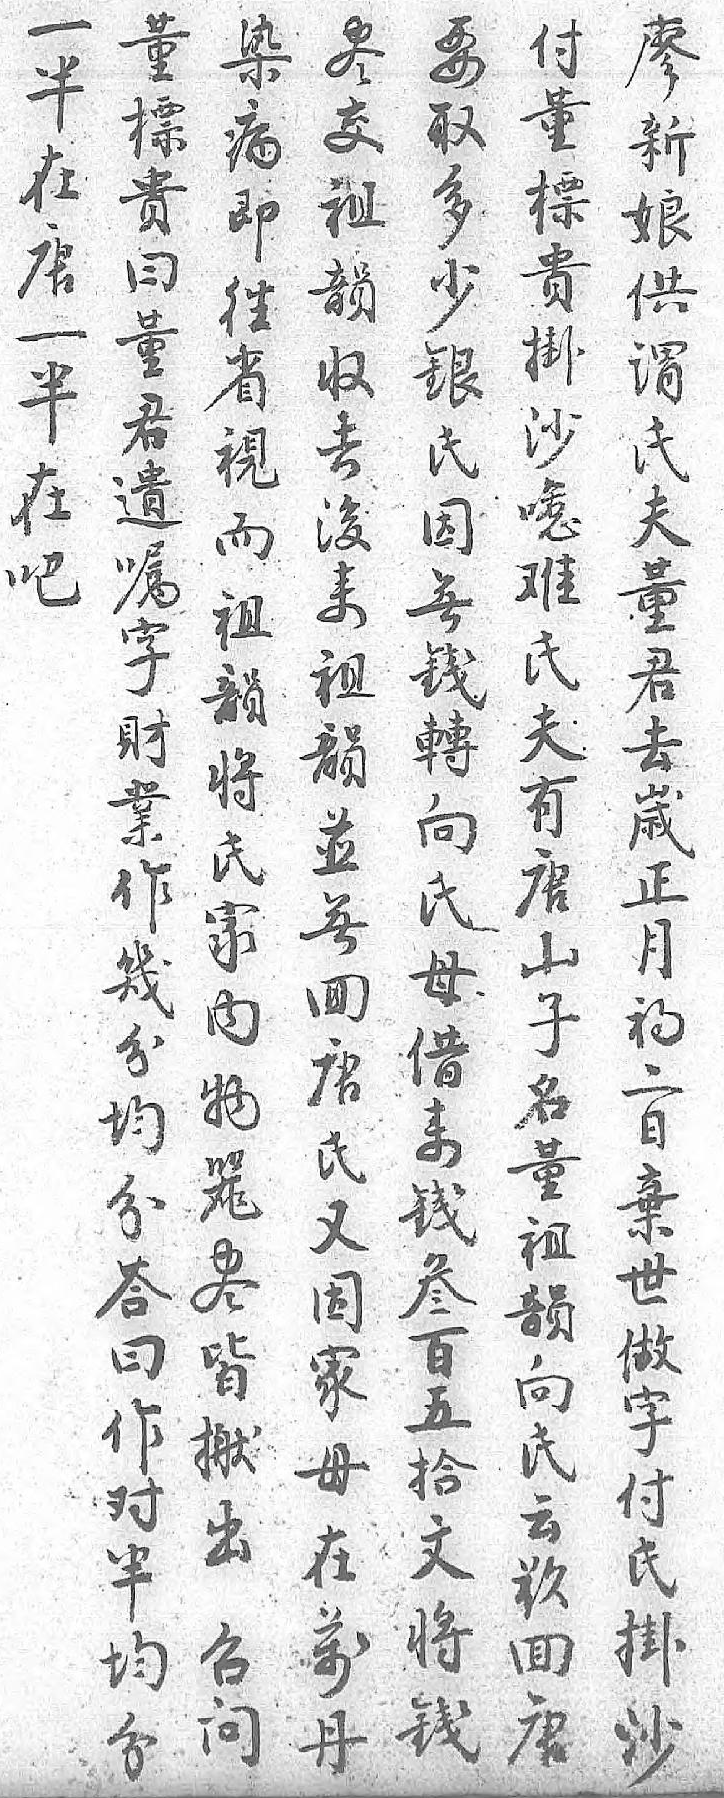 廖新娘供谓氏夫董君去歲正月初二日棄世做字付氏掛沙
付董標貴掛沙嘫难氏夫有唐山子名董祖韻向氏云欲囬唐
要取多少銀氏因無錢轉向氏母借来錢叁百五拾文將錢
尽交祖韻收去後来祖韻並無囬唐氏又因家母在萬丹
染病即徃省視而祖韻將氏家内物噐尽皆搬出召问
董標貴曰董君遺嘱字財業作幾分均分荅曰作对半均分
一半在唐一半在吧